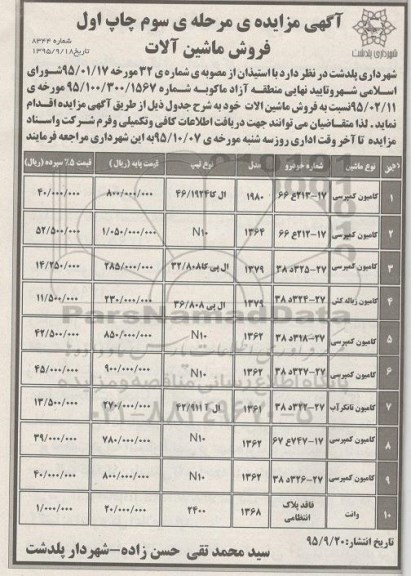 آگهی مزایده ی مرحله ی سوم چاپ اول
فروش ماشین آلات
شماره ۸۳۴۴
تاریخ ۱۳۹۵/۹/۱۸
شهرداری پلدشت
شهرداری پلدشت در نظر دارد با استیذان از مصوبه ی شماره ی ۳۲ مورخه ۹۵/۰۱/۱۷شورای
اسلامی شهروتایید نهایی منطقه آزاد ماکوبه شماره ۹۵/۱۰۰/۳۰۰/۱۵۶۷ مورخه ی
۹۵/۰۲/۱۱نسبت به فروش ماشین الات خود به شرح جدول ذیل از طریق آگهی مزایده اقدام
نماید . لذا متقاضیان می توانند جهت دریافت اطلاعات کافی وتکمیلی وفرم شرکت واسناد
مزایده تا آخر وقت اداری روزسه شنبه مورخه ی ۹۵/۱۰/۰۷به این شهرداری مراجعه فرمایند
ردیف نوع ماشین شماره خودرو مدل نوع تیپ قیمت پایه (ریال) قیمت ۵٪ سپرده (ریال)
۱ کامیون کمپرسی ۱۷-۲۱۳ع ۶۶ ۱۹۸۰ ال کا۴۶/۱۹۲۴ ۸۰۰/۰۰۰/۰۰۰ ۴۰/۰۰۰/۰۰۰
۲ کامیون کمپرسی ۱۷-۲۱۲ع ۶۶ ۱۳۶۴ N۱۰ ۱/۰۵۰/۰۰۰/۰۰۰ ۵۲/۵۰۰/۰۰۰
۳ کامیون کمپرسی ۲۷-۳۲۵د ۳۸ ۱۳۷۹ ال پی کا۳۲/۸۰۸ ۲۸۵/۰۰۰/۰۰۰ ۱۴/۲۵۰/۰۰۰
۴ کامیون زباله کش ۲۷-۳۲۴د ۳۸ ۱۳۷۹ ال پی ۳۶/۸۰۸ ۲۳۰/۰۰۰/۰۰۰ ۱۱/۵۰۰/۰۰۰
۵ کامیون کمپرسی ۲۷-۳۱۸د ۳۸ ۱۳۶۲ N۱۰ ۸۵۰/۰۰۰/۰۰۰ ۴۲/۵۰۰/۰۰۰
۶ کامیون کمپرسی ۲۷-۳۲۷د ۳۸ ۱۳۶۲ N۱۰ ۹۰۰/۰۰۰/۰۰۰ ۴۵/۰۰۰/۰۰۰
۷ کامیون تانکرآب ۲۷-۳۴۲د ۳۸ ۱۳۶۱ ۲۷۰/۰۰۰/۰۰۰ ۱۳/۵۰۰/۰۰۰
۸ کامیون کمپرسی ۱۷-۷۴۷ع ۶۷ ۱۳۶۲ N۱۰ ۷۸۰/۰۰۰/۰۰۰ ۳۹/۰۰۰/۰۰۰
۹ کامیون کمپرسی ۲۷-۳۲۶د ۳۸ ۱۳۶۲ N۱۰ ۸۰۰/۰۰۰/۰۰۰ ۴۰/۰۰۰/۰۰۰
۱۰ وانت فاقد پلاک انتظامی ۱۳۶۸ ۲۴۰۰ ۲۰/۰۰۰/۰۰۰ ۱/۰۰۰/۰۰۰
ParsNamadData
پایگاه اطلاع رسانی مناقصه و مزایده
تاریخ انتشار: ۹۵/۹/۲۰
سید محمد تقی حسن زاده-شهردار پلدشت